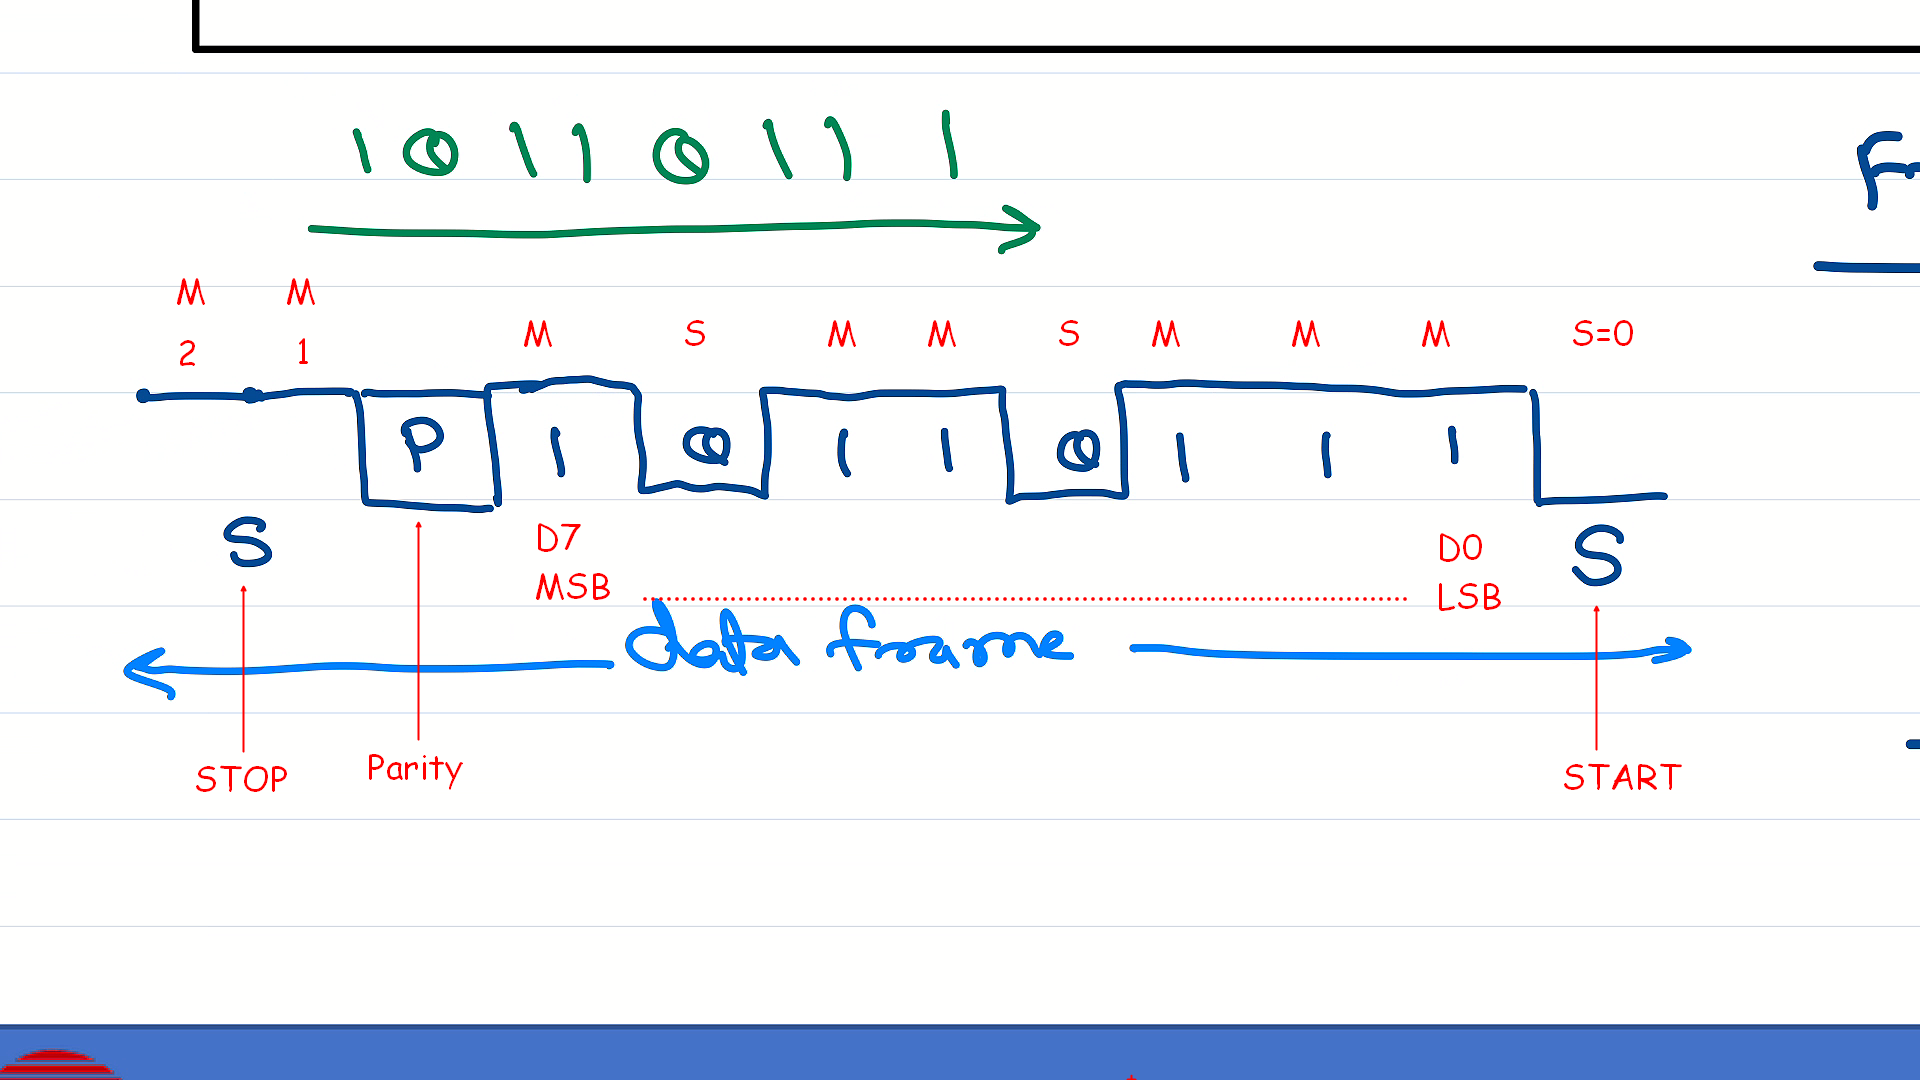 1 0 1 1 0 1 1 1
M M
M S M M S M M M S=0
2 1
P 1 0 1 1 0 1 1 1
S D7 D0 S
MSB LSB
data frame
STOP Parity START